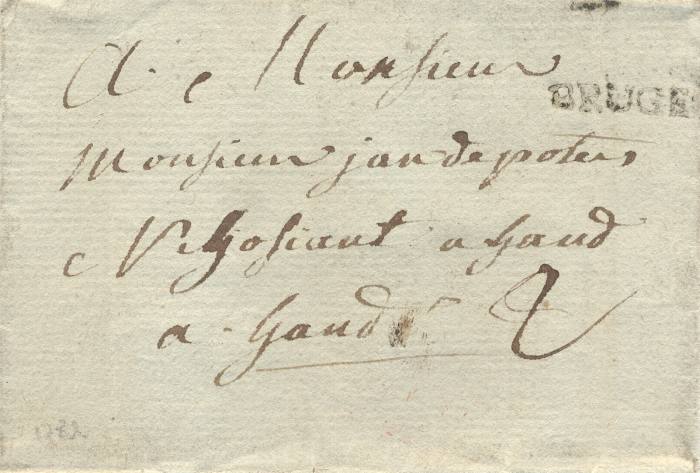 A Monsieur
BRUGE
Monsieur jan de poters
Negosiant a gand
a gand 2
1782